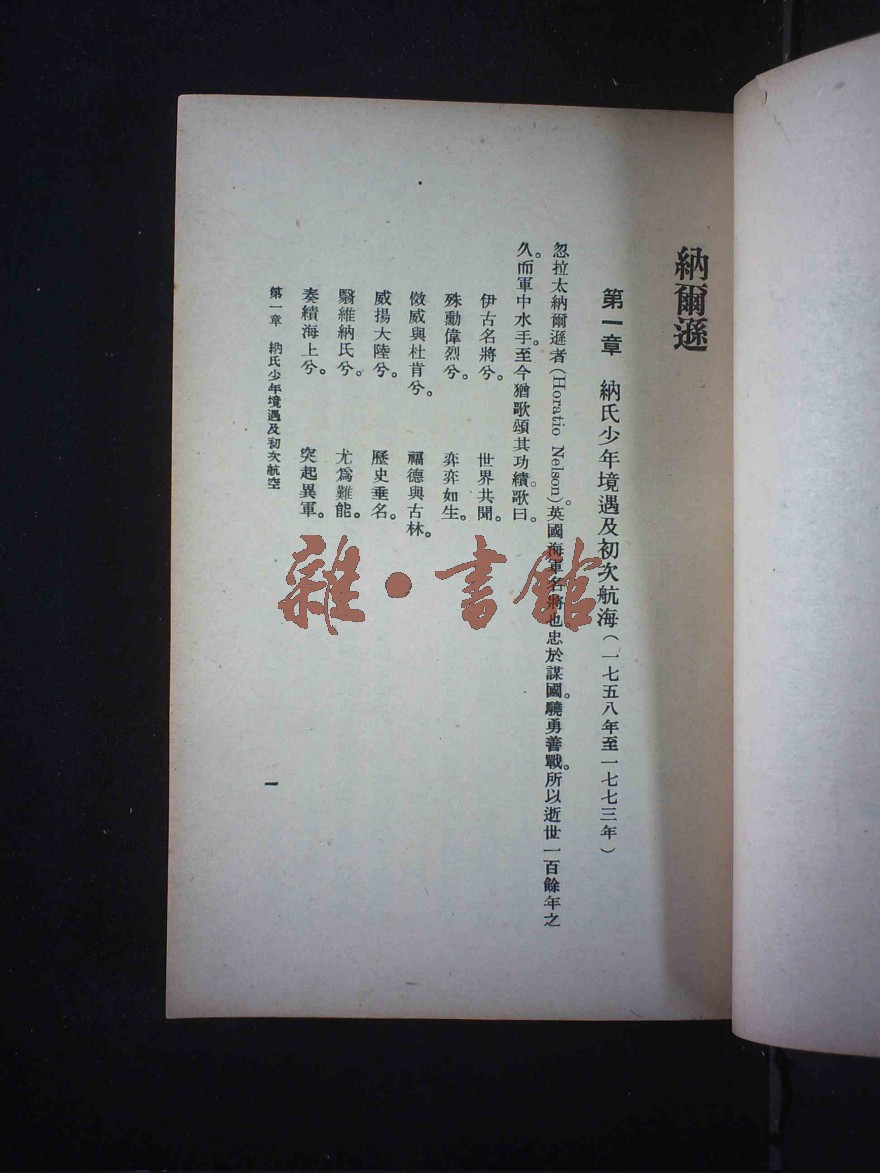 納爾遜
第一章 納氏少年境遇及初次航海(一七五八年至一七七三年)
忽拉太納爾遜者(Horatio Nelson)。英國海軍名將也。忠於謀國。驍勇善戰。所以逝世一百餘年之
久。而軍中水手。至今猶歌頌其功績。歌曰。
伊古名將兮。 世界共聞。
殊勳偉烈兮。 弈弈如生。
儆威與杜肯兮。 福德與古林。
威揚大陸兮。 歷史垂名。
翳維納氏兮。 尤爲難能。
奏績海上兮。 突起異軍。
第一章 納氏少年境遇及初次航空
一
雜·書館